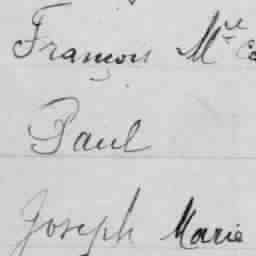 François Mie
Paul
Joseph Marie